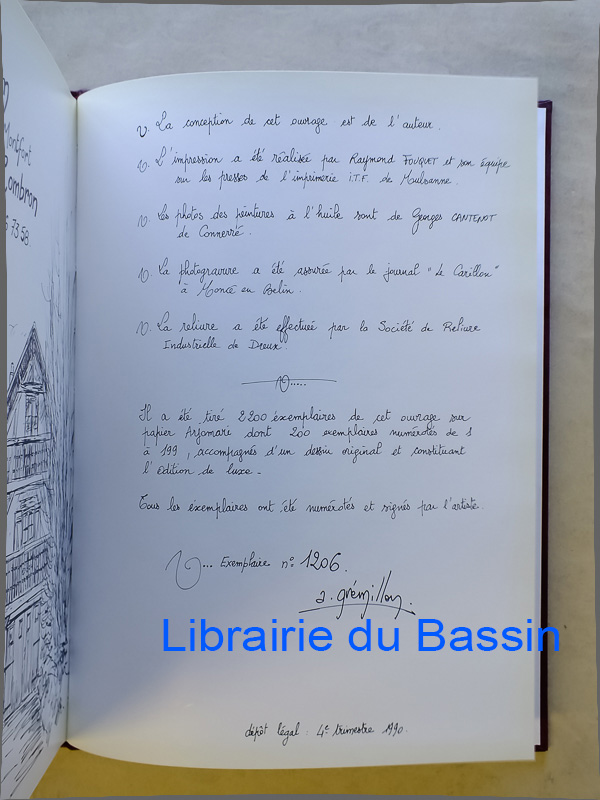 Montfort
Lombron
73 58.
La conception de cet ouvrage est de l'auteur.
L'impression a été réalisée par Raymond FOUQUET et son équipe
sur les presses de l'imprimerie I.T.F. de Mulsanne.
Les photos des peintures à l'huile sont de Georges CANTENOT
de Connerré.
La photogravure a été assurée par le journal "Le Carillon"
à Moncé en Belin.
La reliure a été effectuée par la Société de Reliure
Industrielle de Dreux.
Il a été tiré 2200 exemplaires de cet ouvrage sur
papier Arjomari dont 200 exemplaires numérotés de 1
à 199, accompagnés d'un dessin original et constituant
l'édition de luxe.
Tous les exemplaires ont été numérotés et signés par l'artiste.
... Exemplaire n°: 1206.
a. grémillon.
Librairie du Bassin
dépôt légal : 4e trimestre 1990.